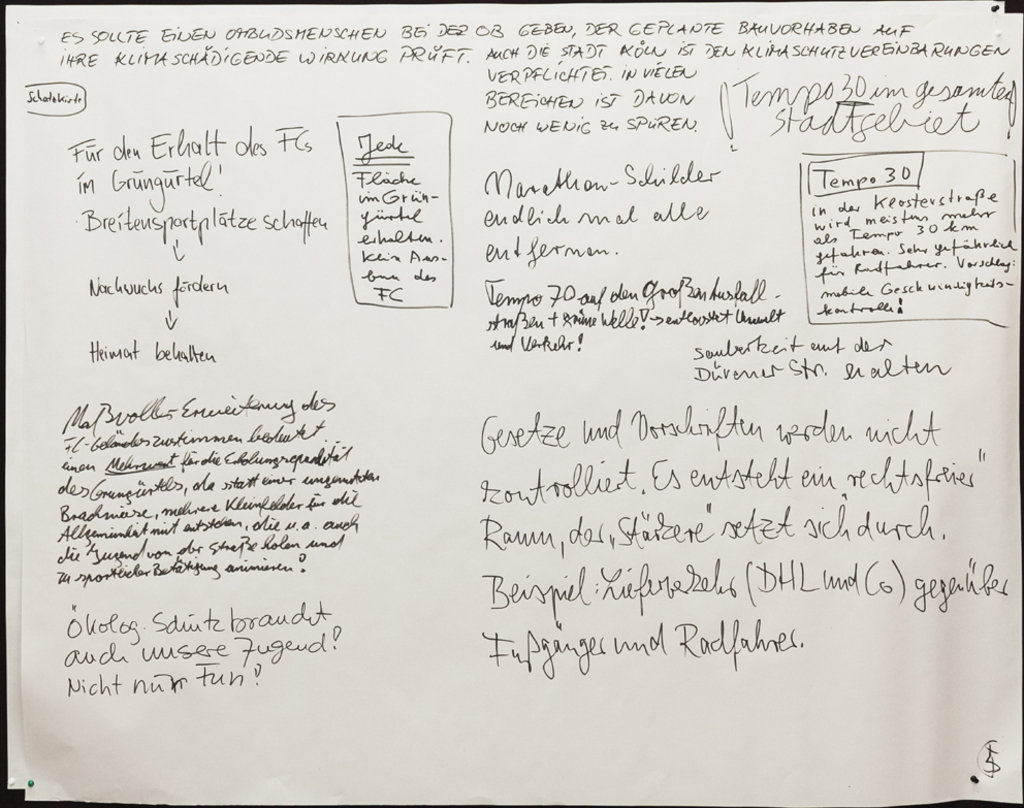 ES SOLLTE EINEN OMBUDSMENSCHEN BEI DER OB GEBEN, DER GEPLANTE BAUVORHABEN AUF
IHRE KLIMASCHÄDIGENDE WIRKUNG PRÜFT. AUCH DIE STADT KÖLN IST DEN KLIMASCHUTZVEREINBARUNGEN
VERPFLICHTET. IN VIELEN
BEREICHEN IST DAVON
NOCH WENIG ZU SPÜREN.
! Tempo 30 im gesamten !
Stadtgebiet
Für den Erhalt des FCs
im Grüngürtel!
Breitensportplätze schaffen
↓
Nachwuchs fördern
↓
Heimat behalten
Jede
Fläche
im Grün-
gürtel
erhalten.
Kein Aus-
bau des
FC
Marathon-Schilder
endlich mal alle
entfernen.
Tempo 30
in der Klosterstraße
wird meistens mehr
als Tempo 30 km
gefahren. Sehr gefährlich
für Radfahrer. Vorschlag:
mobile Geschwindigkeits-
kontrolle!
Tempo 70 auf den großen Ausfall-
straßen + Grüne Welle! → entlastet Umwelt
und Verkehr!
Sauberkeit auf der
Dürener Str. erhalten
Maßvoller Erweiterung des
FC-Geländes zustimmen bedeutet
einen Mehrwert für die Erholungsqualität
des Grüngürtels, da statt einer ungenutzten
Brachwiese, mehrere Kleinfelder für die
Allgemeinheit mit entstehen, die u.a. auch
die Jugend von der Straße holen und
zu sportlicher Betätigung animieren!
Ökolog. Schutz braucht
auch unsere Jugend!
Nicht nur Fun!
Gesetze und Vorschriften werden nicht
kontrolliert. Es entsteht ein "rechtsfreier"
Raum, der „Stärkere" setzt sich durch.
Beispiel: Lieferverkehr (DHL und Co) gegenüber
Fußgänger und Radfahrer.